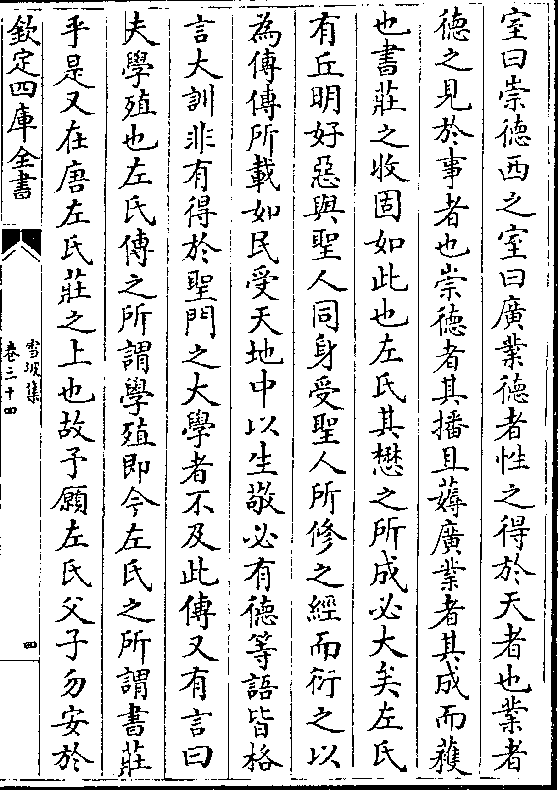 室曰崇德西之室曰廣業德者性之得於天者也業者
德之見於事者也崇德者其播且薅廣業者其成而蘶
也書莊之收固如此也左氏其懋之所成必大矣左氏
有丘明好惡與聖人同身受聖人所修之經而衍之以
為傳傳所載如民受天地中以生敬必有德等語皆格
言大訓非有得於聖門之大學者不及此傳又有言曰
夫學殖也左氏傳之所謂學殖即今左氏之所謂書莊
乎是又在唐左氏莊之上也故予願左氏父子勿安於
欽定四庫全書
雪坡集
卷三十四
四